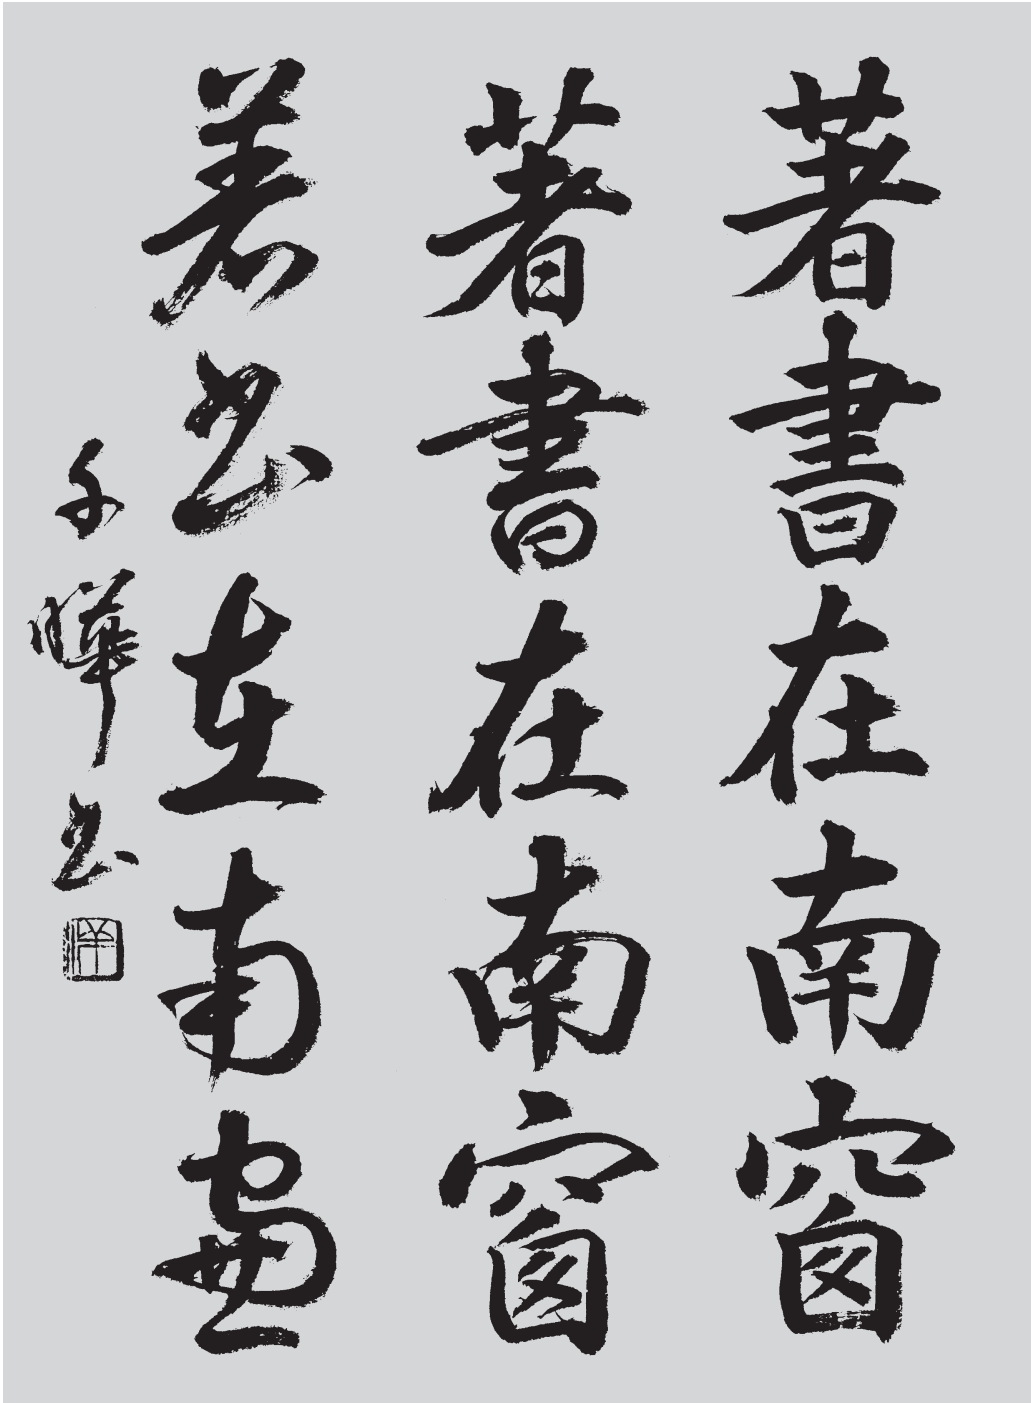 著書在南窗
著書在南窗
著書在南窗
千曄書